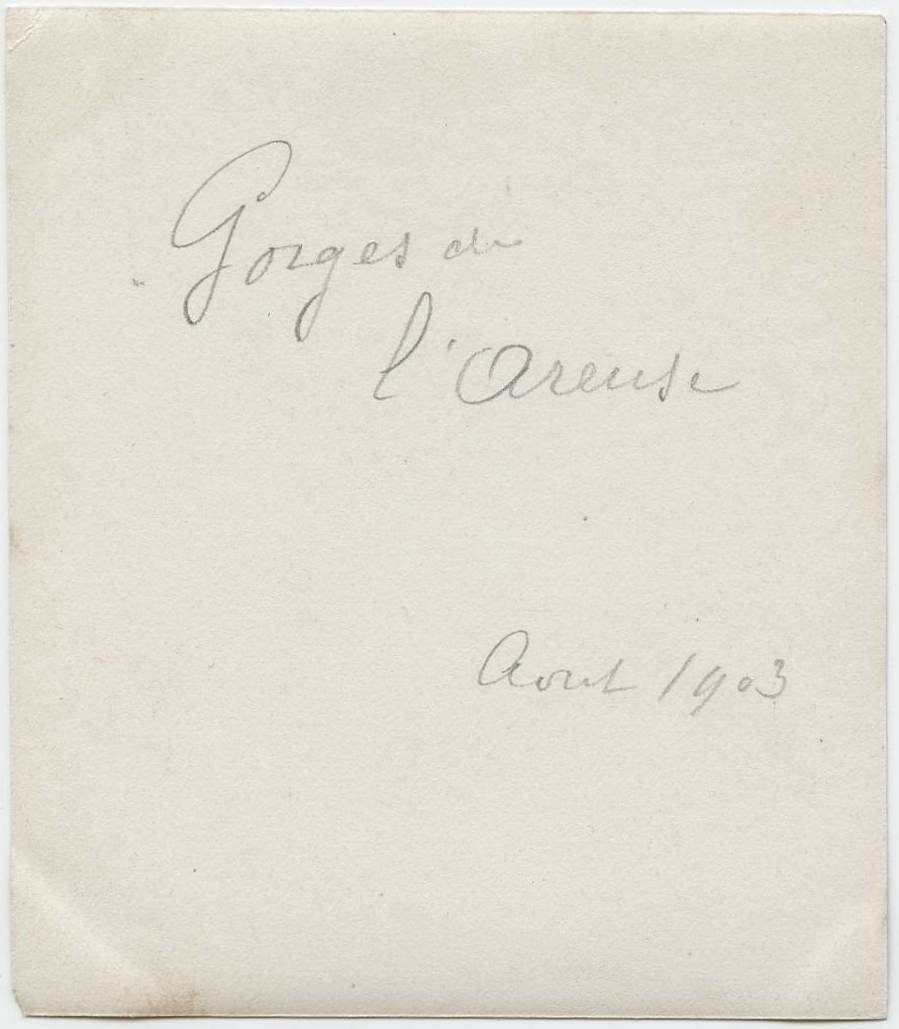 Gorges de
l'Areuse
Aout 1903